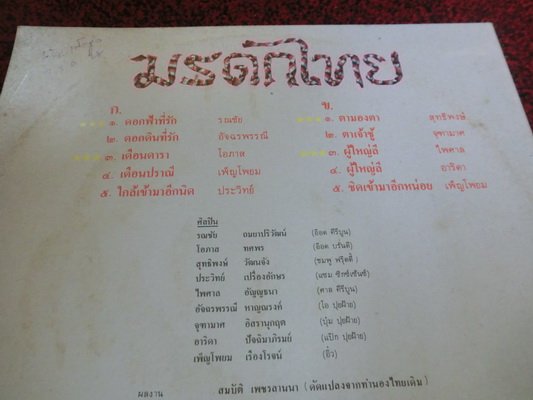 มรดกไทย
ก.
*** ๑. ดอกฟ้าที่รัก รณชัย
๒. ดอกดินที่รัก อัจฉรพรรณี
*** ๓. เดือนดารา โอภาส
๔. เดือนปราณี เพ็ญโพยม
๕. ใกล้เข้ามาอีกนิด ประวิทย์
ข.
*** ๑. ตามองตา สุทธิพงษ์
๒. ตาเจ้าชู้ จุฑามาศ
*** ๓. ผู้ใหญ่ลี ไพศาล
๔. ผู้ใหญ่ลี อาริดา
๕. ชิดเข้ามาอีกหน่อย เพ็ญโพยม
ศิลปิน
รณชัย ถมยาปริวัฒน์ (อ๊อด คีรีบูน)
โอภาส ทศพร (อ๊อด บรั่นดี)
สุทธิพงษ์ วัฒนจัง (ชมพู ฟรุ๊ตตี้)
ประวิทย์ เปรื่องอักษร (แซม ซิกซ์เซ้นซ์)
ไพศาล อัญญธนา (ศาล คีรีบูน)
อัจฉรพรรณี หาญณรงค์ (ไอ ปุยฝ้าย)
จุฑามาศ อิสรานุกฤต (ปุ้ม ปุยฝ้าย)
อาริดา ปัจฉิมาภิรมย์ (แป๊ก ปุยฝ้าย)
เพ็ญโพยม เรืองโรจน์ (อิ๋ว)
ผลงาน สมบัติ เพชรลานนา (ดัดแปลงจากทำนองไทยเดิม)